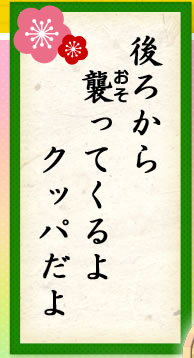 後ろから
襲ってくるよ
おそ
クッパだよ